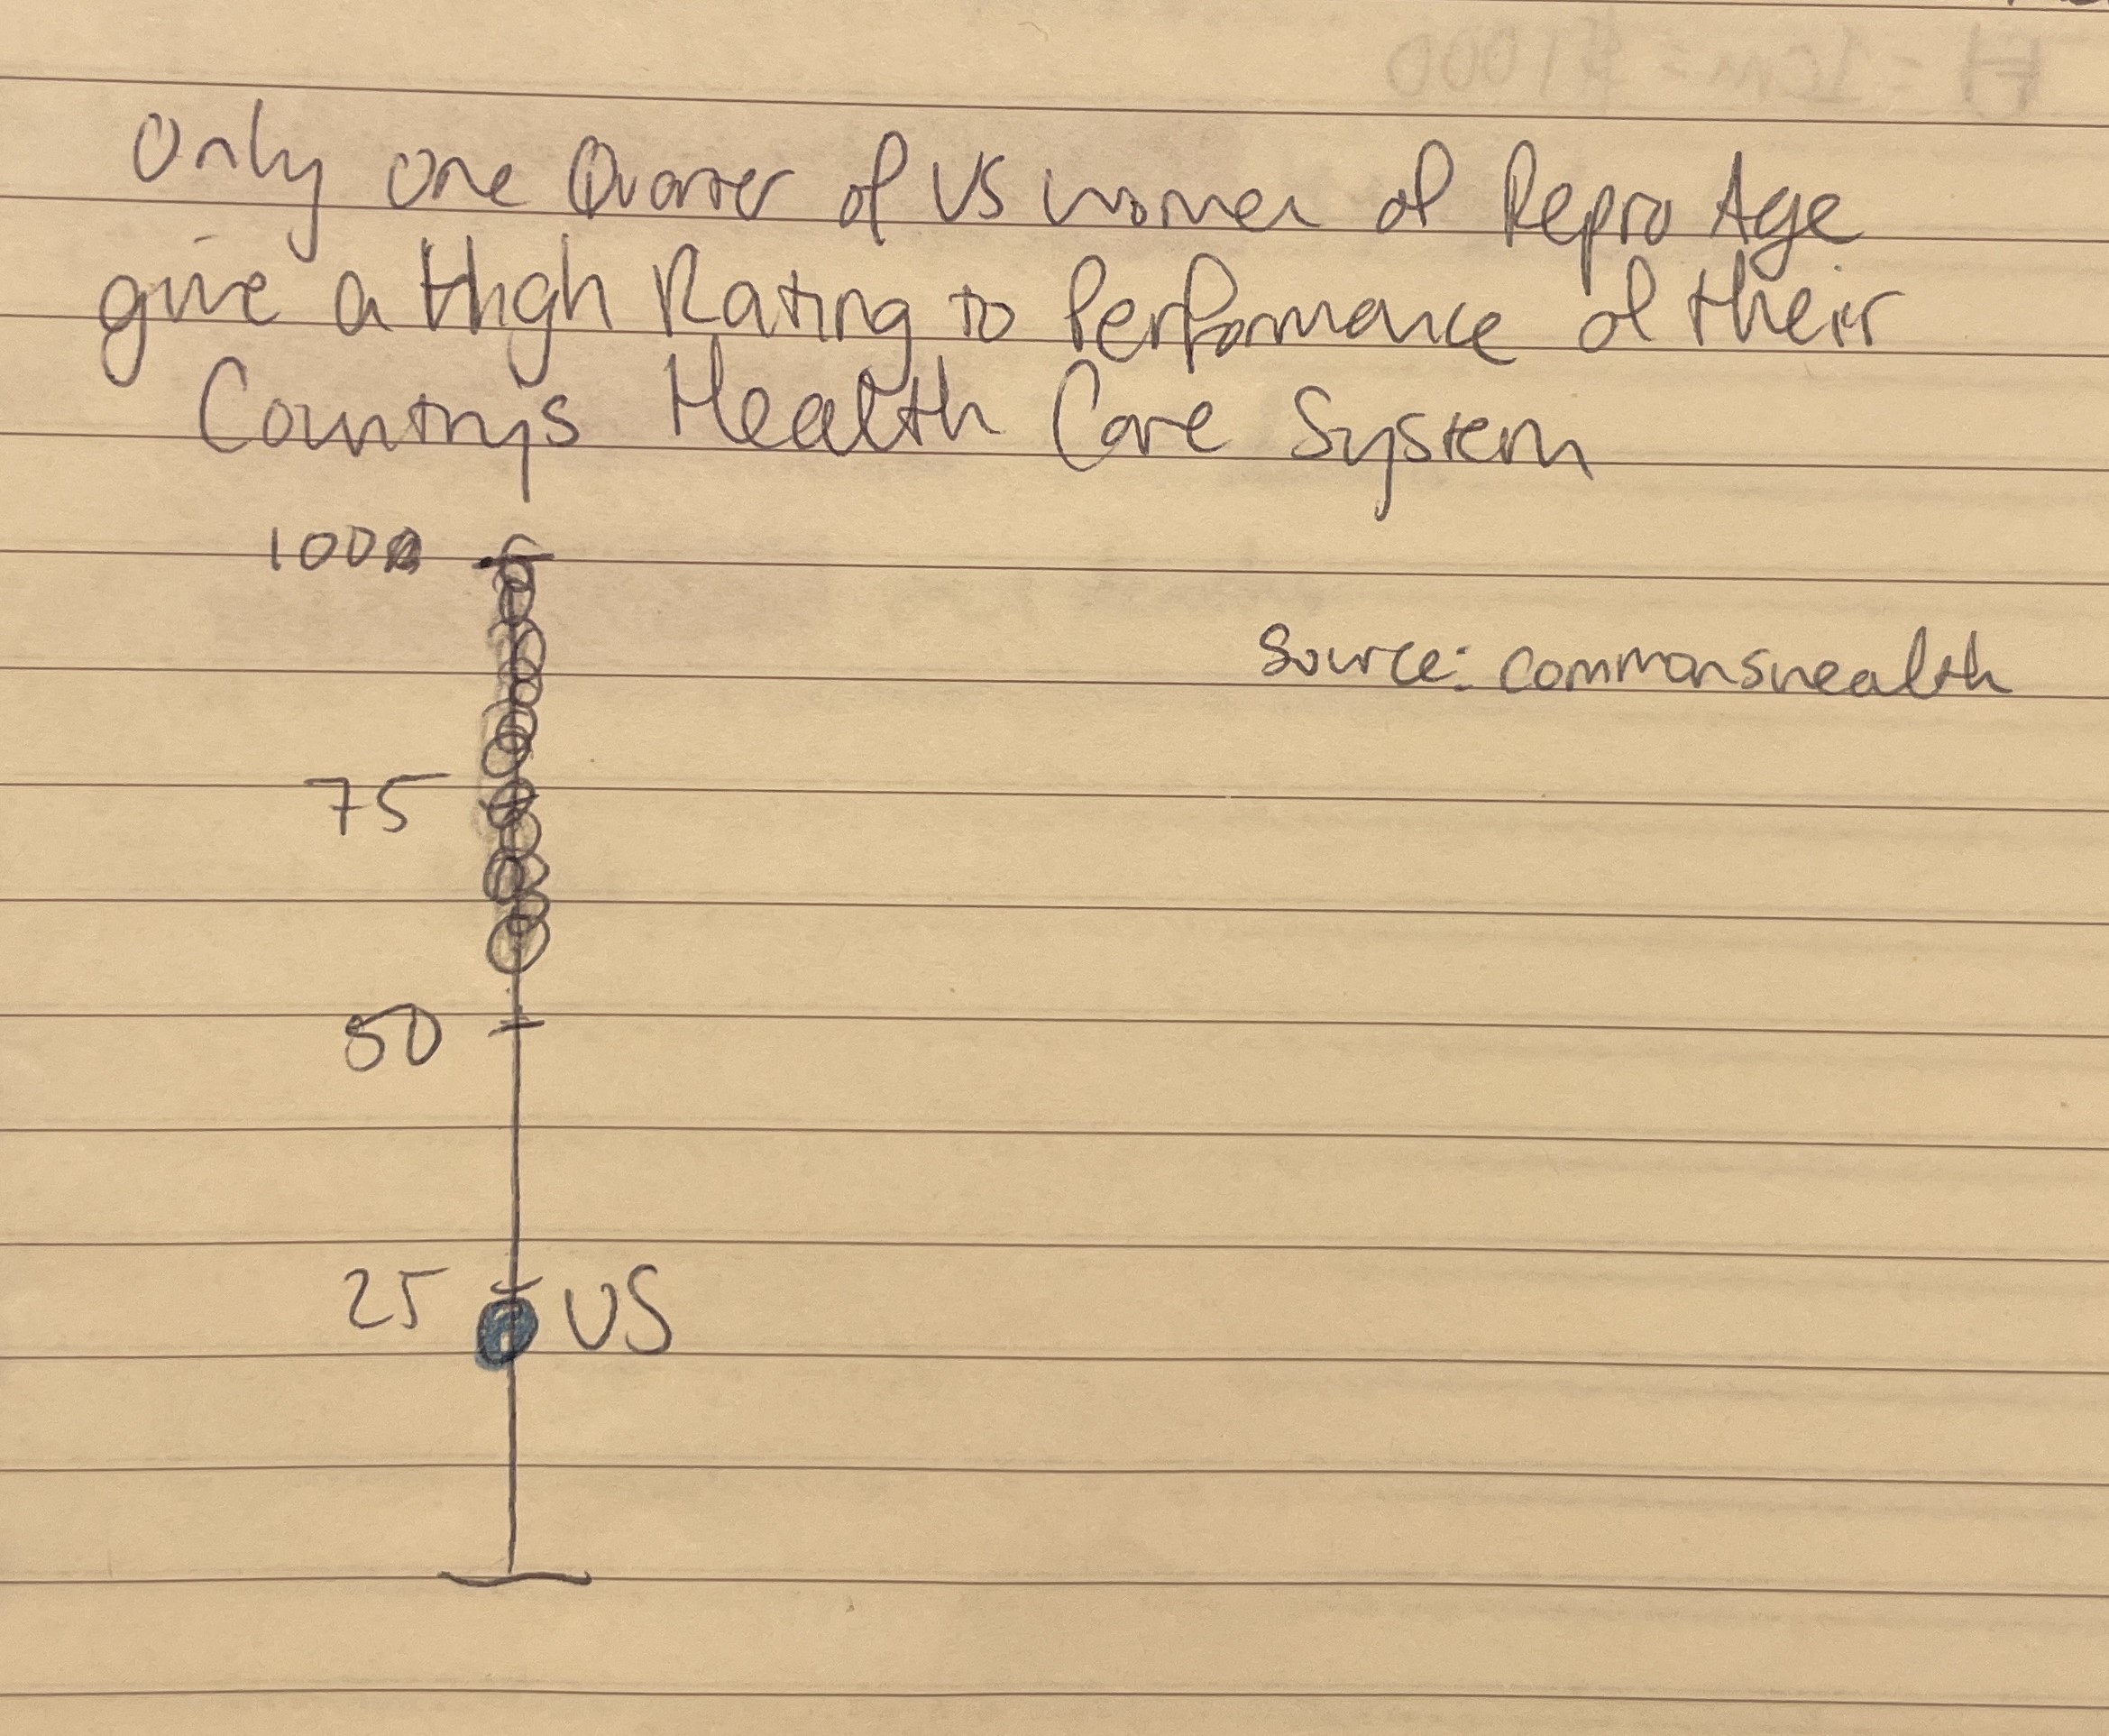 Only one Quarter of US women of Repro Age
give a High Rating to Performance of their
Country's Health Care System
100
Source: commonswealth
75
50
25 US